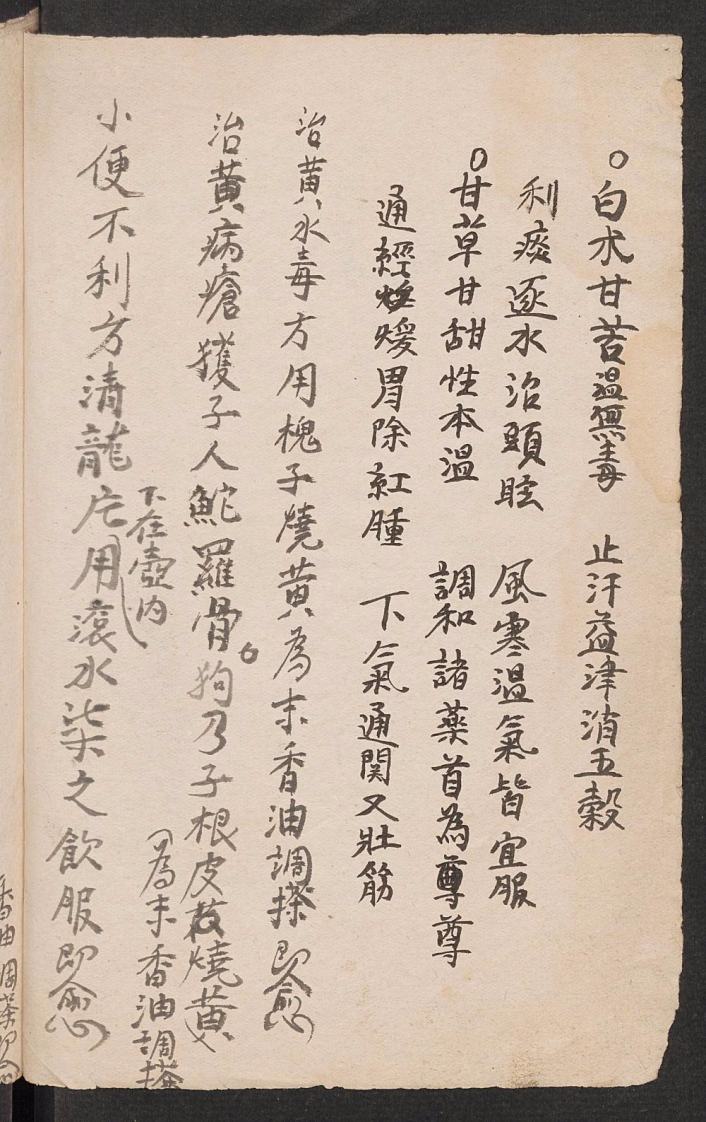 ○白朮甘苦温無毒　止汗益津消五穀
利痰逐水治頭眩　風寒温氣皆宜服
○甘草甘甜性本温　調和諸薬首為尊尊
通經煖胃除紅腫　下氣通関又壯筋
治黄水毒方用槐子燒黄為末香油調搽即愈
治黄病瘡獲子人鮀羅骨狗乃子根皮燒黄
為末香油調搽
小便不利方清龍疕用滾水柒之飲服即愈
下在壺内
香油調茶即愈